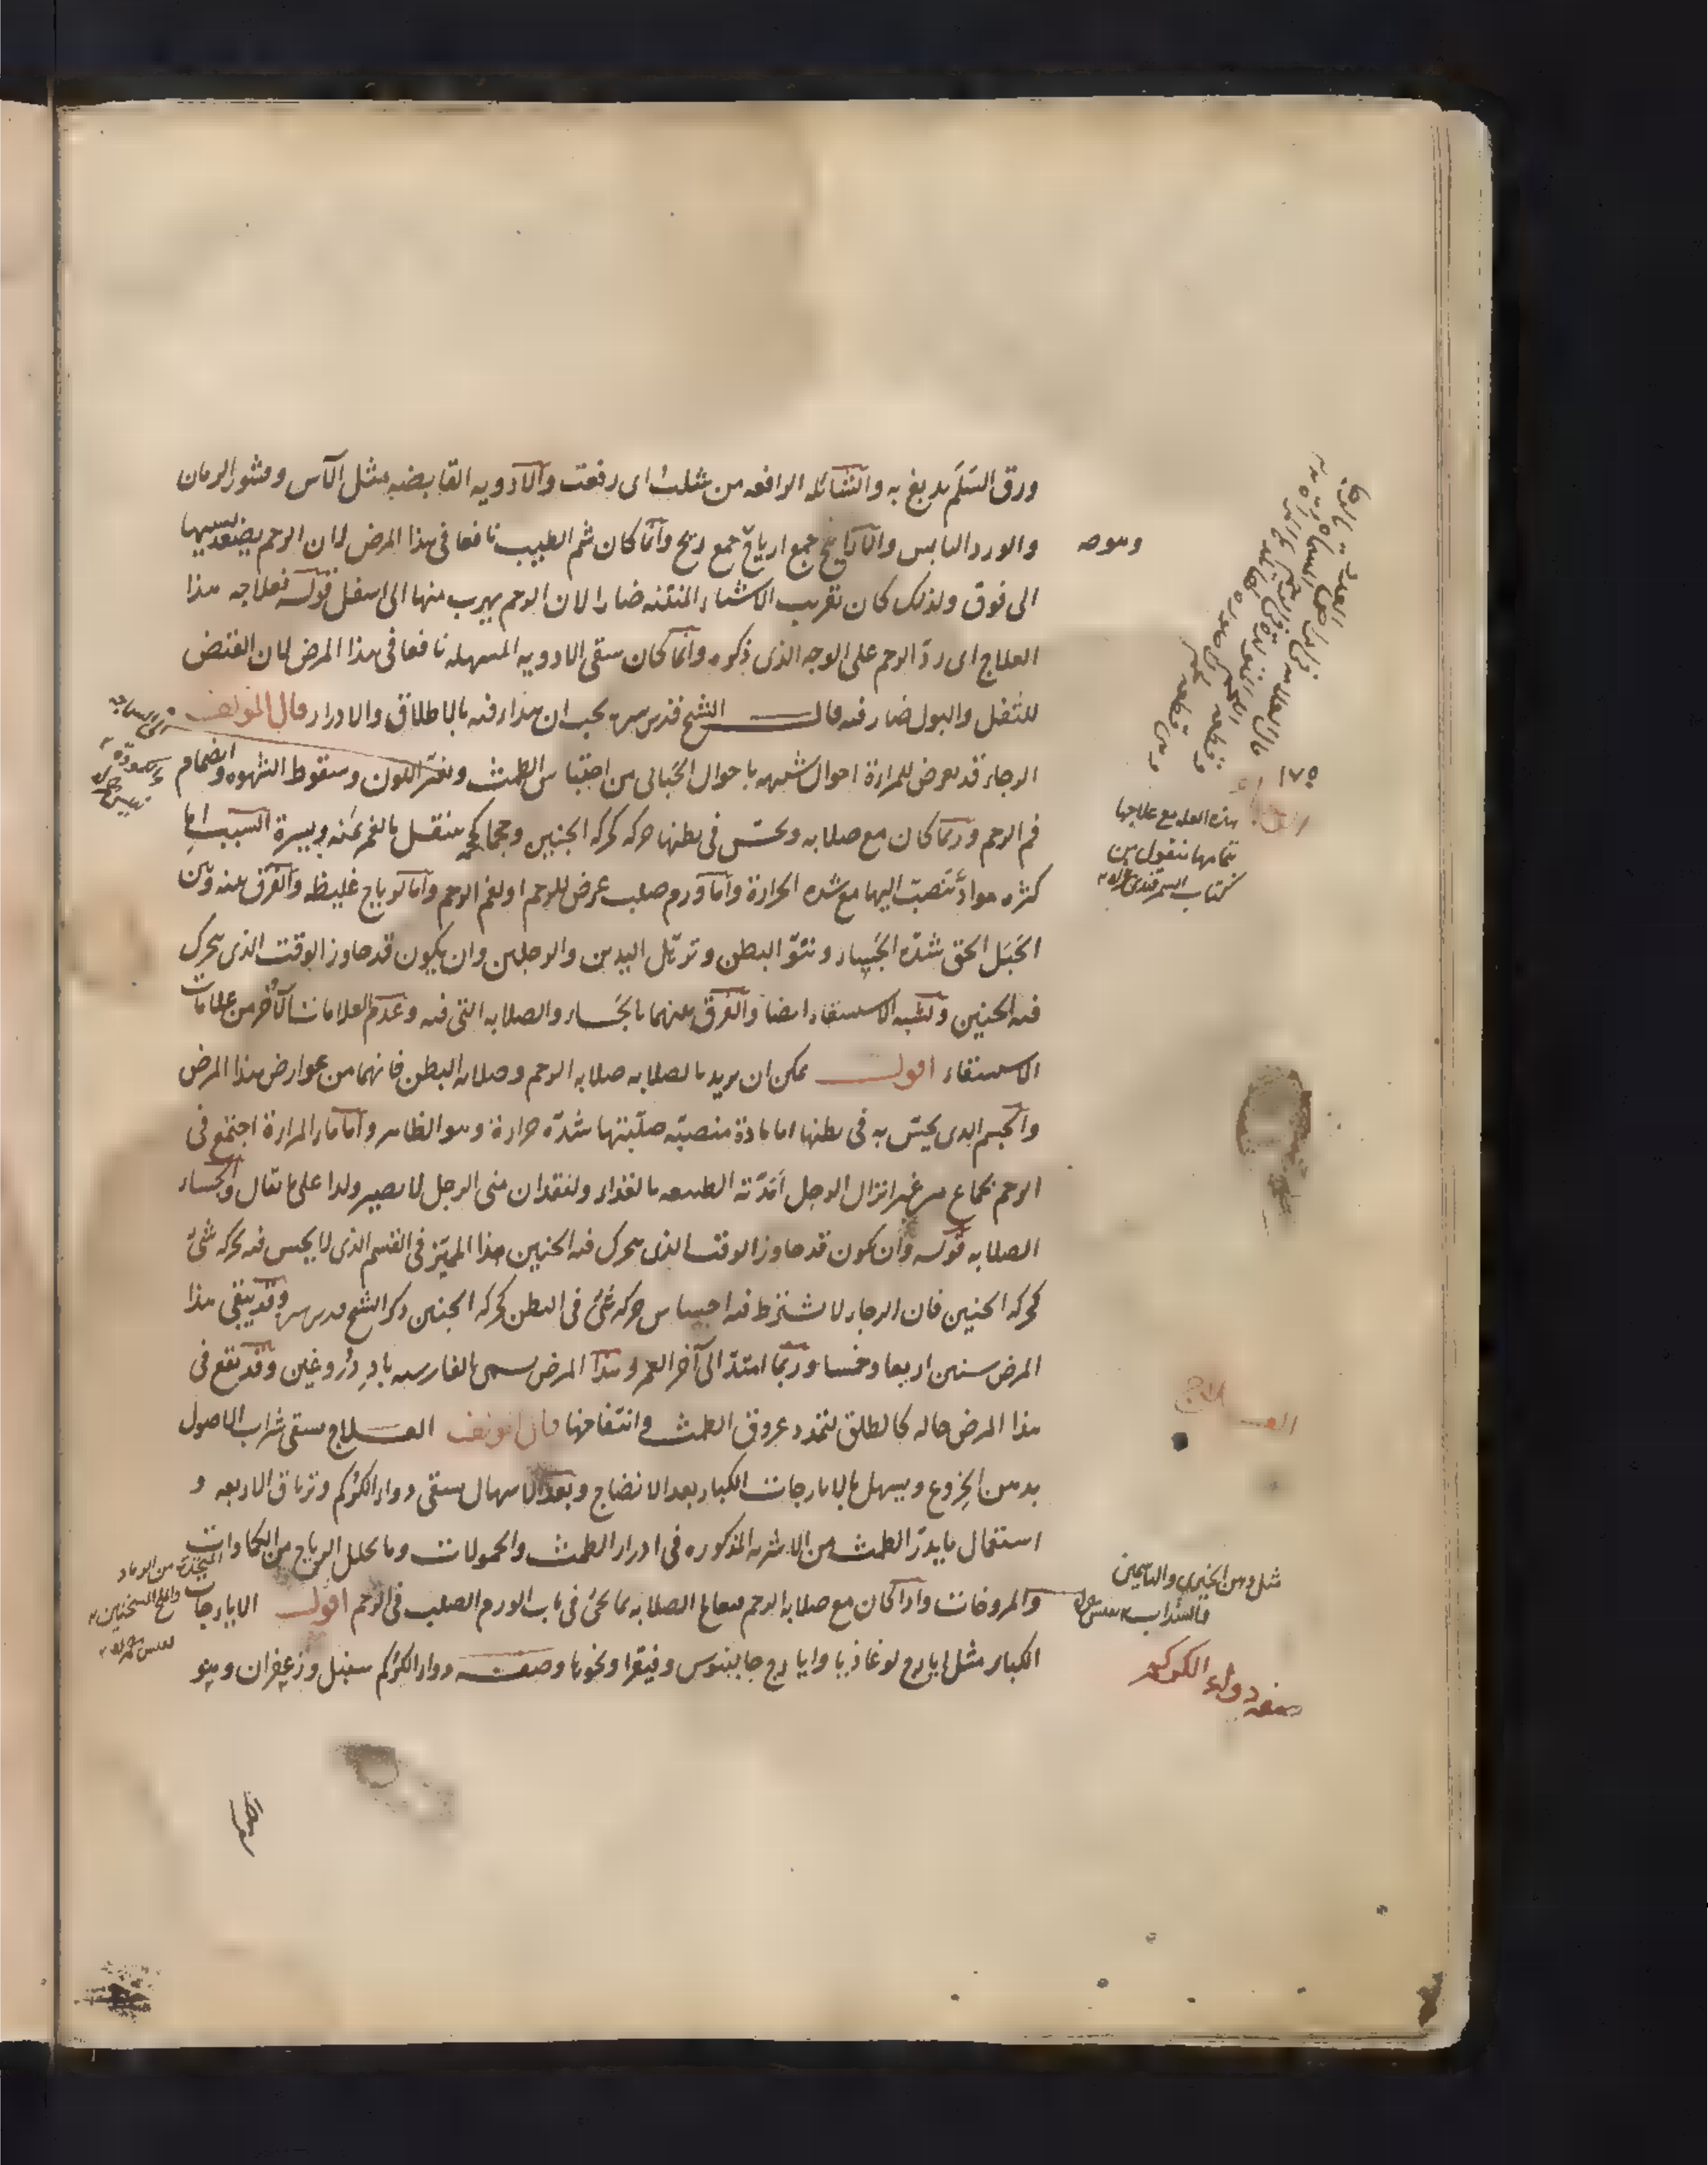 ورق السَلَم يدبغ به والشائله الرافعه من شلتُ اى رفعت والادويه القابضه مثل الآس وقشور الرمان
والورد اليابس والاراييح جمع ارياح جمع ريح وانما كان شم الطيب نافعا فى هذا المرض لان الرحم يصعد بسببها
الى فوق ولذلك كان تقريب الاشياء المنتنه ضارا لان الرحم يهرب منها الى اسفل قوله فعلاجه هذا
العلاج اى ردّ الرحم على الوجه الذى ذكره وانما كان سقى الادويه المسهله نافعا فى هذا المرض لان
للثفل والبول ضار فيه قال الشيخ قدس سره يجب ان يبدا فيه بالاطلاق والادرار قال المولف
الرجاء قد يعرض للمراة احوال شبيهه باحوال الحبالى من احتباس الطمث وتغير اللون وسقوط الشهوه وانضمام
فم الرحم وربما كان مع صلابه ويحس فى بطنها حركه كحركه الجنين وحجما كحجمه ينتقل بالغمز يمنه ويسرة السبب اما
كثره مواد تنصب اليها مع شده الحرارة واما ورم صلب عرض للرحم او لفم الرحم واما لرياح غليظه والفرق بينه وبين
الحَبَل الحق شدّه الجَساء ونتوّ البطن وترهّل اليدين والرجلين وان يكون قد جاوز الوقت الذى يتحرك
فيه الجنين ويشبه الاستسقاء ايضا والفرق بينهما بالجساء والصلابه التى فيه وعدم العلامات الاُخر من علامات
الاستسقاء اقول يمكن ان يريد بالصلابه صلابه الرحم وصلابه البطن فانهما من عوارض هذا المرض
والجسم الذى يحسّ به فى بطنها اما مادة منصبّه صلّبتها شدّه حرارة وهو الظاهر واما ماء المراة اجتمع فى
الرحم بجماع من غير انزال الرجل امَدّته الطبيعه بالغذاء ولفقدان منى الرجل لا يصير ولدا على ما يقال والجساء
الصلابه قوله وان يكون قد جاوز الوقت الذى يتحرك فيه الجنين هذا المميّز فى القسم الذى لا يحس فيه بحركه شئ
كحركه الجنين فان الرجاء لا يشترط فيه احساس حركه شئ فى البطن كحركه الجنين ذكر الشيخ قدس سره وقد يبقى هذا
المرض سنين اربعا وخمسا وربما امتدّ الى آخر العمر وهذا المرض يسمى بالفارسيه بادِ دُروغين وقد يقع فى
هذا المرض حاله كالطلق لتمدد عروق الطمث وانتفاخها قال المولف العلاج سقى شراب الاصول
بدهن الخِروع ويسهل بالايارجات الكبار بعد الانضاج وبعد الاسهال يسقى دواء الكركم وترياق الاربعه و
استعمال ما يدرّ الطمث من الاشربه المذكوره فى ادرار الطمث والحمولات وما يحلل الرياح من الكمادات
والمروخات واذا كان مع صلابه الرحم فيعالج الصلابه بما يجئ فى باب الورم الصلب فى الرحم اقول الايارجات
الكبار مثل ايارج لوغاذيا وايارج جالينوس وفيقرا ونحوها وصفه دواء الكركم سنبل وزعفران ومو
وهوصه
١٧٥
هذه العله مع علاجها
بتمامها منقول من
كتاب السمرقندى
العلاج
مثل دهن الخيرى والياسمين
والسداب
صفه دواء الكركم
المتخذة من الرماد
والملح المسخنين